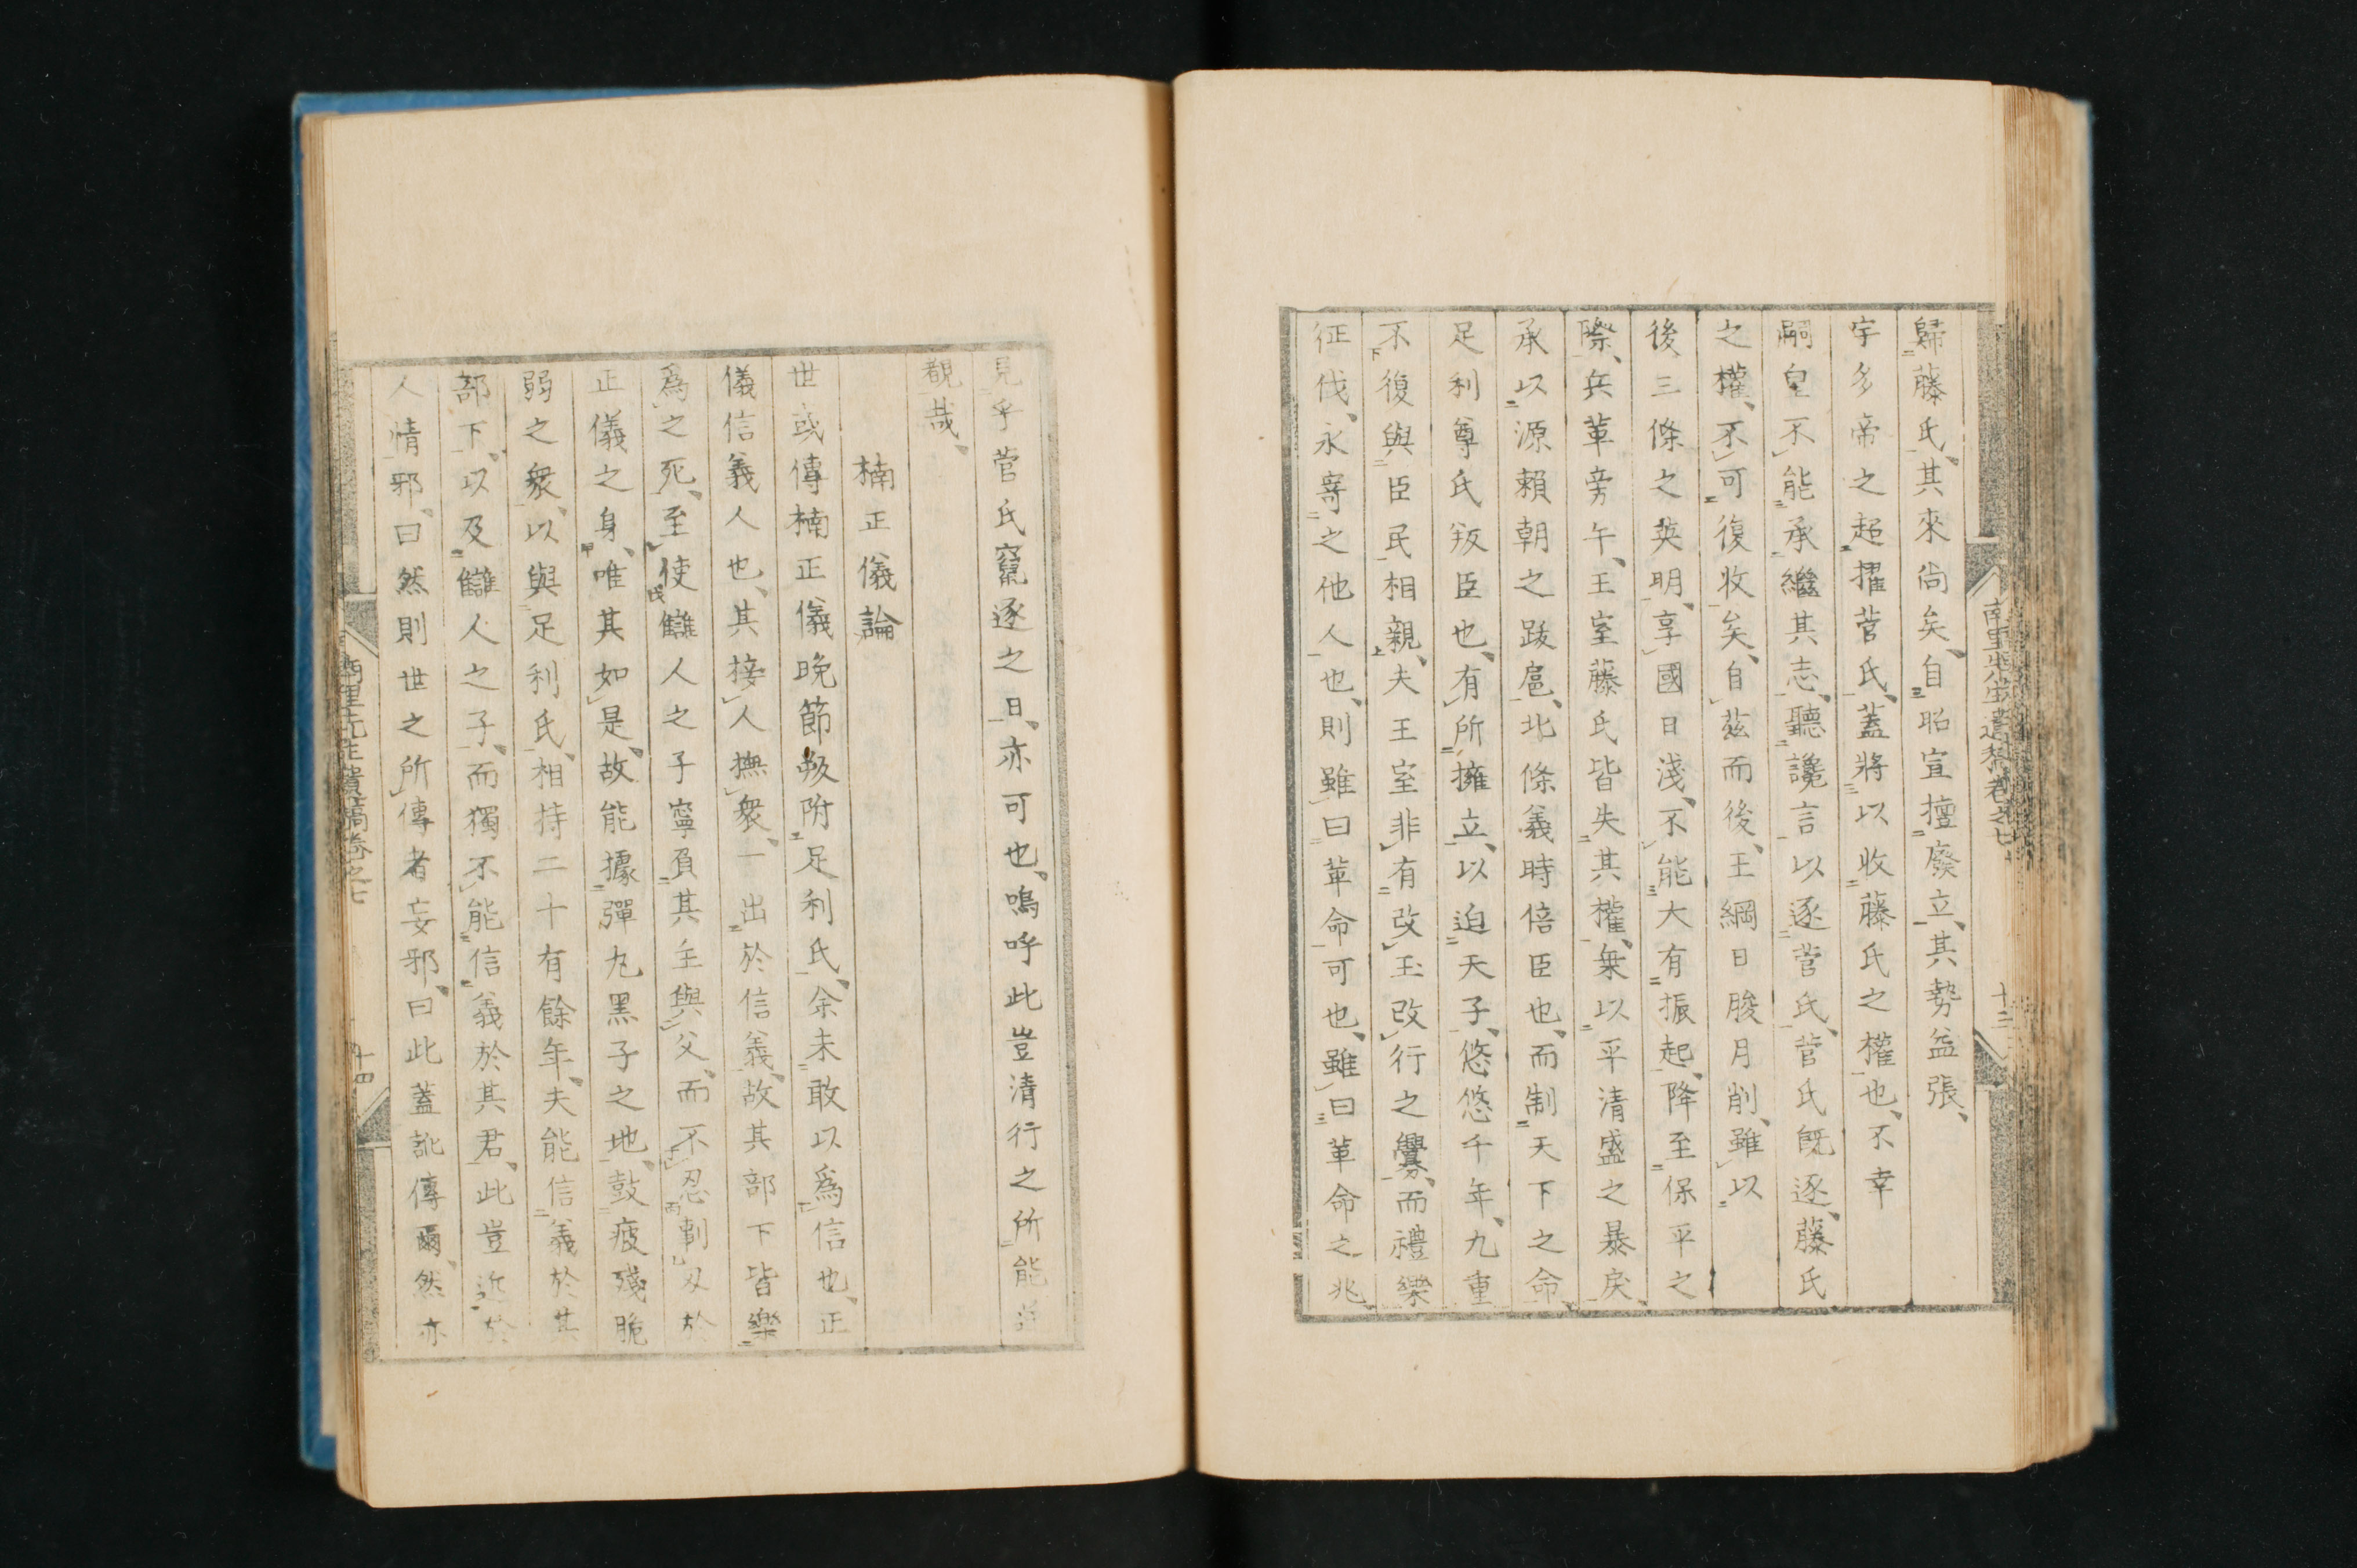 歸藤氏、其來尚矣、自昭宣擅廢立、其勢益張、
宇多帝之超擢菅氏、蓋將以收藤氏之權也、不幸
嗣皇不能承繼其志、聽讒言以逐菅氏、菅氏既逐、藤氏
之權、不可復收矣、自茲而後、王綱日朘月削、雖以
後三條之英明、享國日淺、不能大有振起、降至保平之
際、兵革旁午、王室藤氏皆失其權、乗以平清盛之暴戾、
承以源賴朝之跋扈、北條義時倍臣也、而制天下之命、
足利尊氏叛臣也、有所擁立、以迫天子、悠悠千年、九重
不復與臣民相親、夫王室非有改玉改行之釁、而禮樂
征伐、永寄之他人也、則雖曰革命可也、雖曰革命之兆
見乎菅氏竄逐之日、亦可也、嗚呼此豈清行之所能
覩哉、
楠正儀論
世或傳楠正儀晩節叛附足利氏、余未敢以爲信也、正
儀信義人也、其接人撫衆、一出於信義、故其部下皆樂
爲之死、至使讎人之子寧負其主與父、而不忍剚刄於
正儀之身、唯其如是、故能據彈丸黑子之地、鼓疲殘脆
弱之衆、以與足利氏、相持二十有餘年、夫能信義於其
部下、以及讎人之子、而獨不能信義於其君、此豈近於
人情邪、曰然則世之所傳者妄邪、曰此蓋訛傳爾、然亦
十四